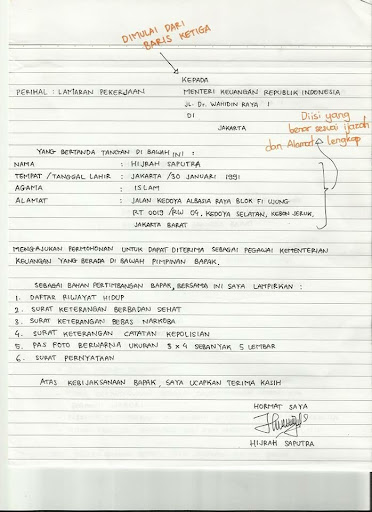 DIMULAI DARI
BARIS KETIGA
KEPADA
PERIHAL : LAMARAN PEKERJAAN
MENTERI KEUANGAN REPUBLIK INDONESIA
JL. Dr. WAHIDIN RAYA 1
DI
JAKARTA
Diisi yang
benar sesuai ijazah
dan Alamat lengkap
YANG BERTANDA TANGAN DI BAWAH INI :
NAMA : HIJRAH SAPUTRA
TEMPAT / TANGGAL LAHIR : JAKARTA / 30 JANUARI 1991
AGAMA : ISLAM
ALAMAT : JALAN KEDOYA ALBASIA RAYA BLOK FI UJUNG
RT 0019 / RW 04. KEDOYA SELATAN, KEBON JERUK,
JAKARTA BARAT
MENGAJUKAN PERMOHONAN UNTUK DAPAT DITERIMA SEBAGAI PEGAWAI KEMENTERIAN
KEUANGAN YANG BERADA DI BAWAH PIMPINAN BAPAK.
SEBAGAI BAHAN PERTIMBANGAN BAPAK, BERSAMA INI SAYA LAMPIRKAN :
1. DAFTAR RIWAYAT HIDUP
2. SURAT KETERANGAN BERBADAN SEHAT
3. SURAT KETERANGAN BEBAS NARKOBA
4. SURAT KETERANGAN CATATAN KEPOLISIAN
5. PAS FOTO BERWARNA UKURAN 3 X 4 SEBANYAK 5 LEMBAR
6. SURAT PERNYATAAN
ATAS KEBIJAKSANAAN BAPAK, SAYA UCAPKAN TERIMA KASIH
HORMAT SAYA
HIJRAH SAPUTRA